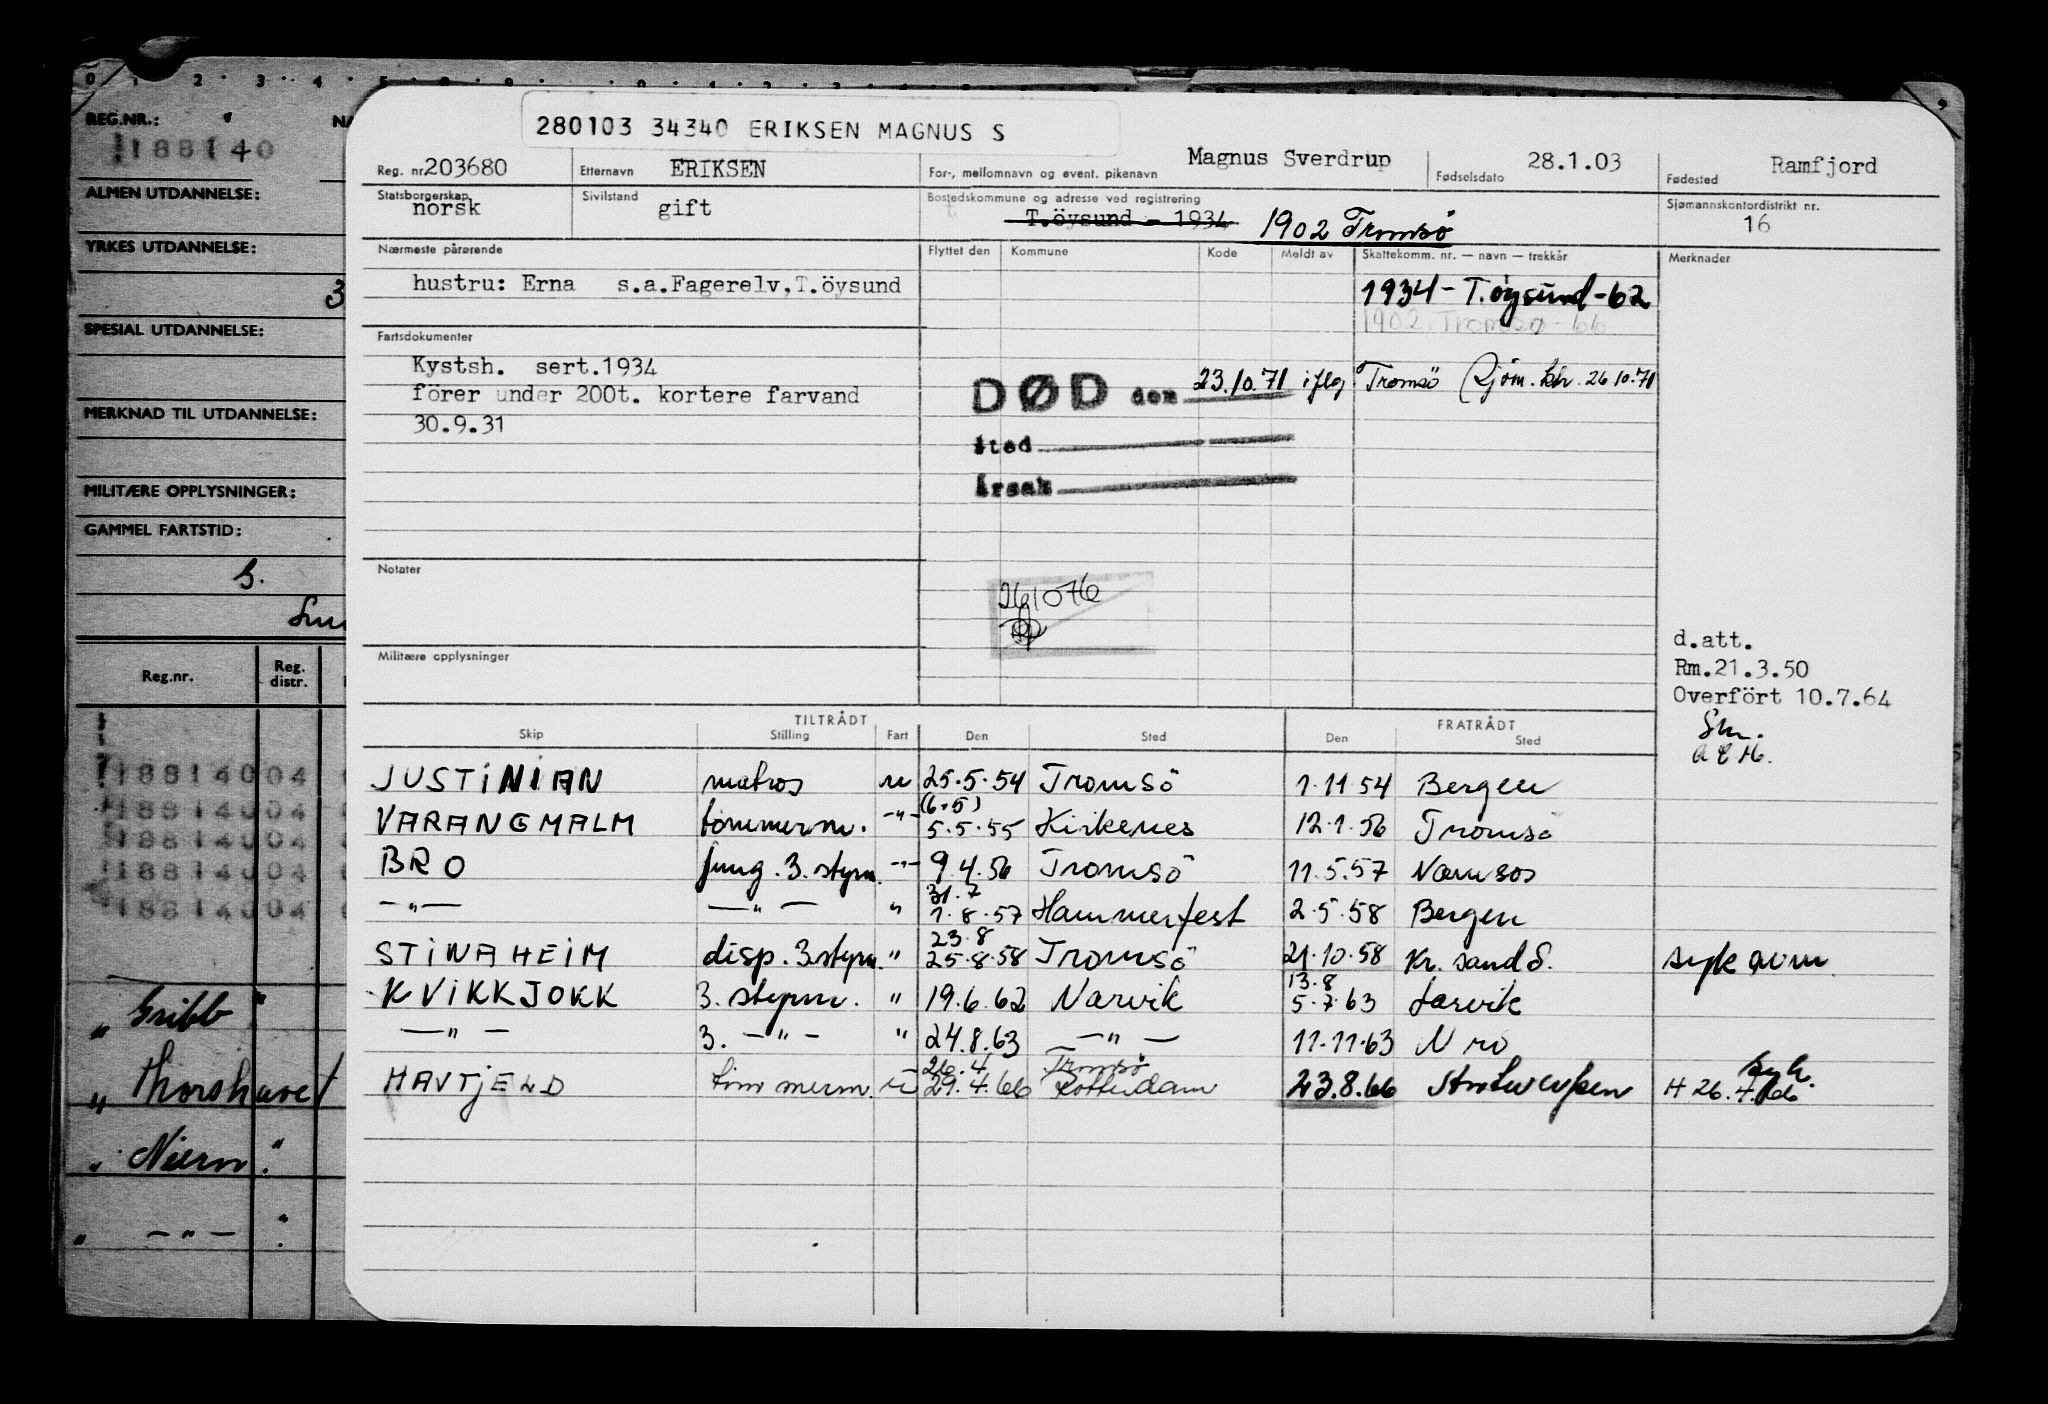 0 1 2 3 4 5
REG.NR.:
188140
ALMEN UTDANNELSE:
YRKES UTDANNELSE:
3
SPESIAL UTDANNELSE:
MERKNAD TIL UTDANNELSE:
MILITÆRE OPPLYSNINGER:
GAMMEL FARTSTID:
Reg.nr. Reg. distr.
18814004
18814004
18814004
18814004
18814004
" Gribb "
" Thorshavet
" Niern "
" — " — "
280103 34340 ERIKSEN MAGNUS S
Reg. nr. 203680 Etternavn ERIKSEN For-, mellomnavn og event. pikenavn Magnus Sverdrup Fødselsdato 28.1.03 Fødested Ramfjord
Statsborgerskap norsk Sivilstand gift Bostedskommune og adresse ved registrering T.öysund - 1934 1902 Tromsö Sjømannskontordistrikt nr. 16
Nærmeste pårørende Flyttet den Kommune Kode Meldt av Skattekomm. nr. — navn — trekkår Merknader
hustru: Erna s.a.Fagerelv,T.öysund 1934 - T.öysund - 62
1902 Tromsø - 66
Fartsdokumenter
Kystsh. sert.1934
förer under 200t. kortere farvand
30.9.31
DØD den 23.10.71 iflg. Tromsö Sjöm. ktr. 26.10.71
sted
årsak
Notater
261076
Militære opplysninger
d.att.
Rm.21.3.50
Overfört 10.7.64
TILTRÅDT FRATRÅDT
Skip Stilling Fart Den Sted Den Sted
JUSTINIAN matros u 25.5.54 Tromsö 1.11.54 Bergen
VARANGMALM tömmerm. -"- (6.5) 5.5.55 Kirkenes 12.1.56 Tromsö
BRO jung. 3. styrm. -"- 9.4.56 Tromsö 11.5.57 Namsos
—"— —"— " 31.7 1.8.57 Hammerfest 2.5.58 Bergen
STINAHEIM disp. 3. styrm. " 23.8 25.8.58 Tromsö 21.10.58 Kr. sand S.
KVIKKJOKK 3. styrm. " 19.6.62 Narvik 13.8 5.7.63 Larvik
—"— 3. —"— " 24.8.63 —"— 11.11.63 N ro
HAVTJELD tömmerm. u 26.4 29.4.66 Tromsö Rotterdam 23.8.66 Antwerpen syk. H 26.4.66